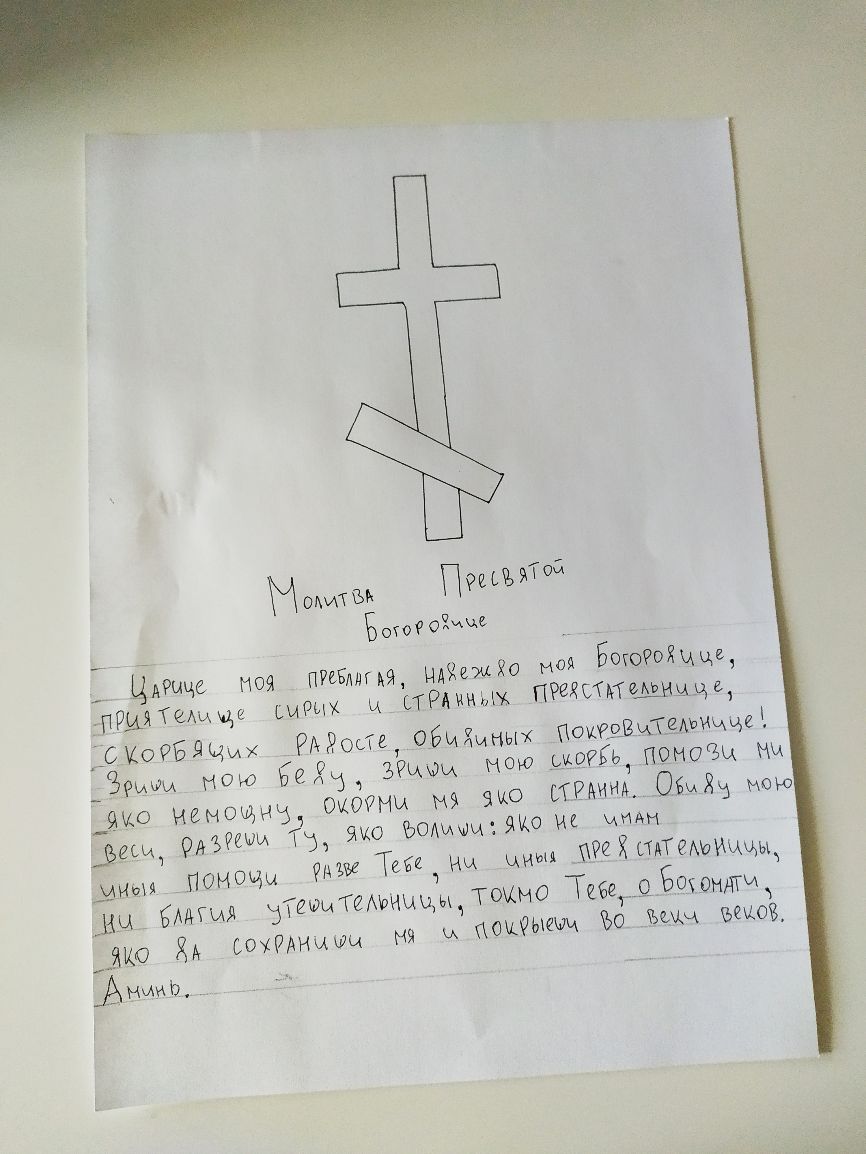 Молитва Пресвятой
Богородице
Царице моя преблагая, надеждо моя Богородице,
приятелище сирых и странных предстательнице,
скорбящих радосте, обидимых покровительнице!
Зриши мою беду, зриши мою скорбь, помози ми
яко немощну, окорми мя яко странна. Обиду мою
веси, разреши ту, яко волиши: яко не имам
иныя помощи разве Тебе, ни иныя предстательницы,
ни благия утешительницы, токмо Тебе, о Богомати,
яко да сохраниши мя и покрыеши во веки веков.
Аминь.